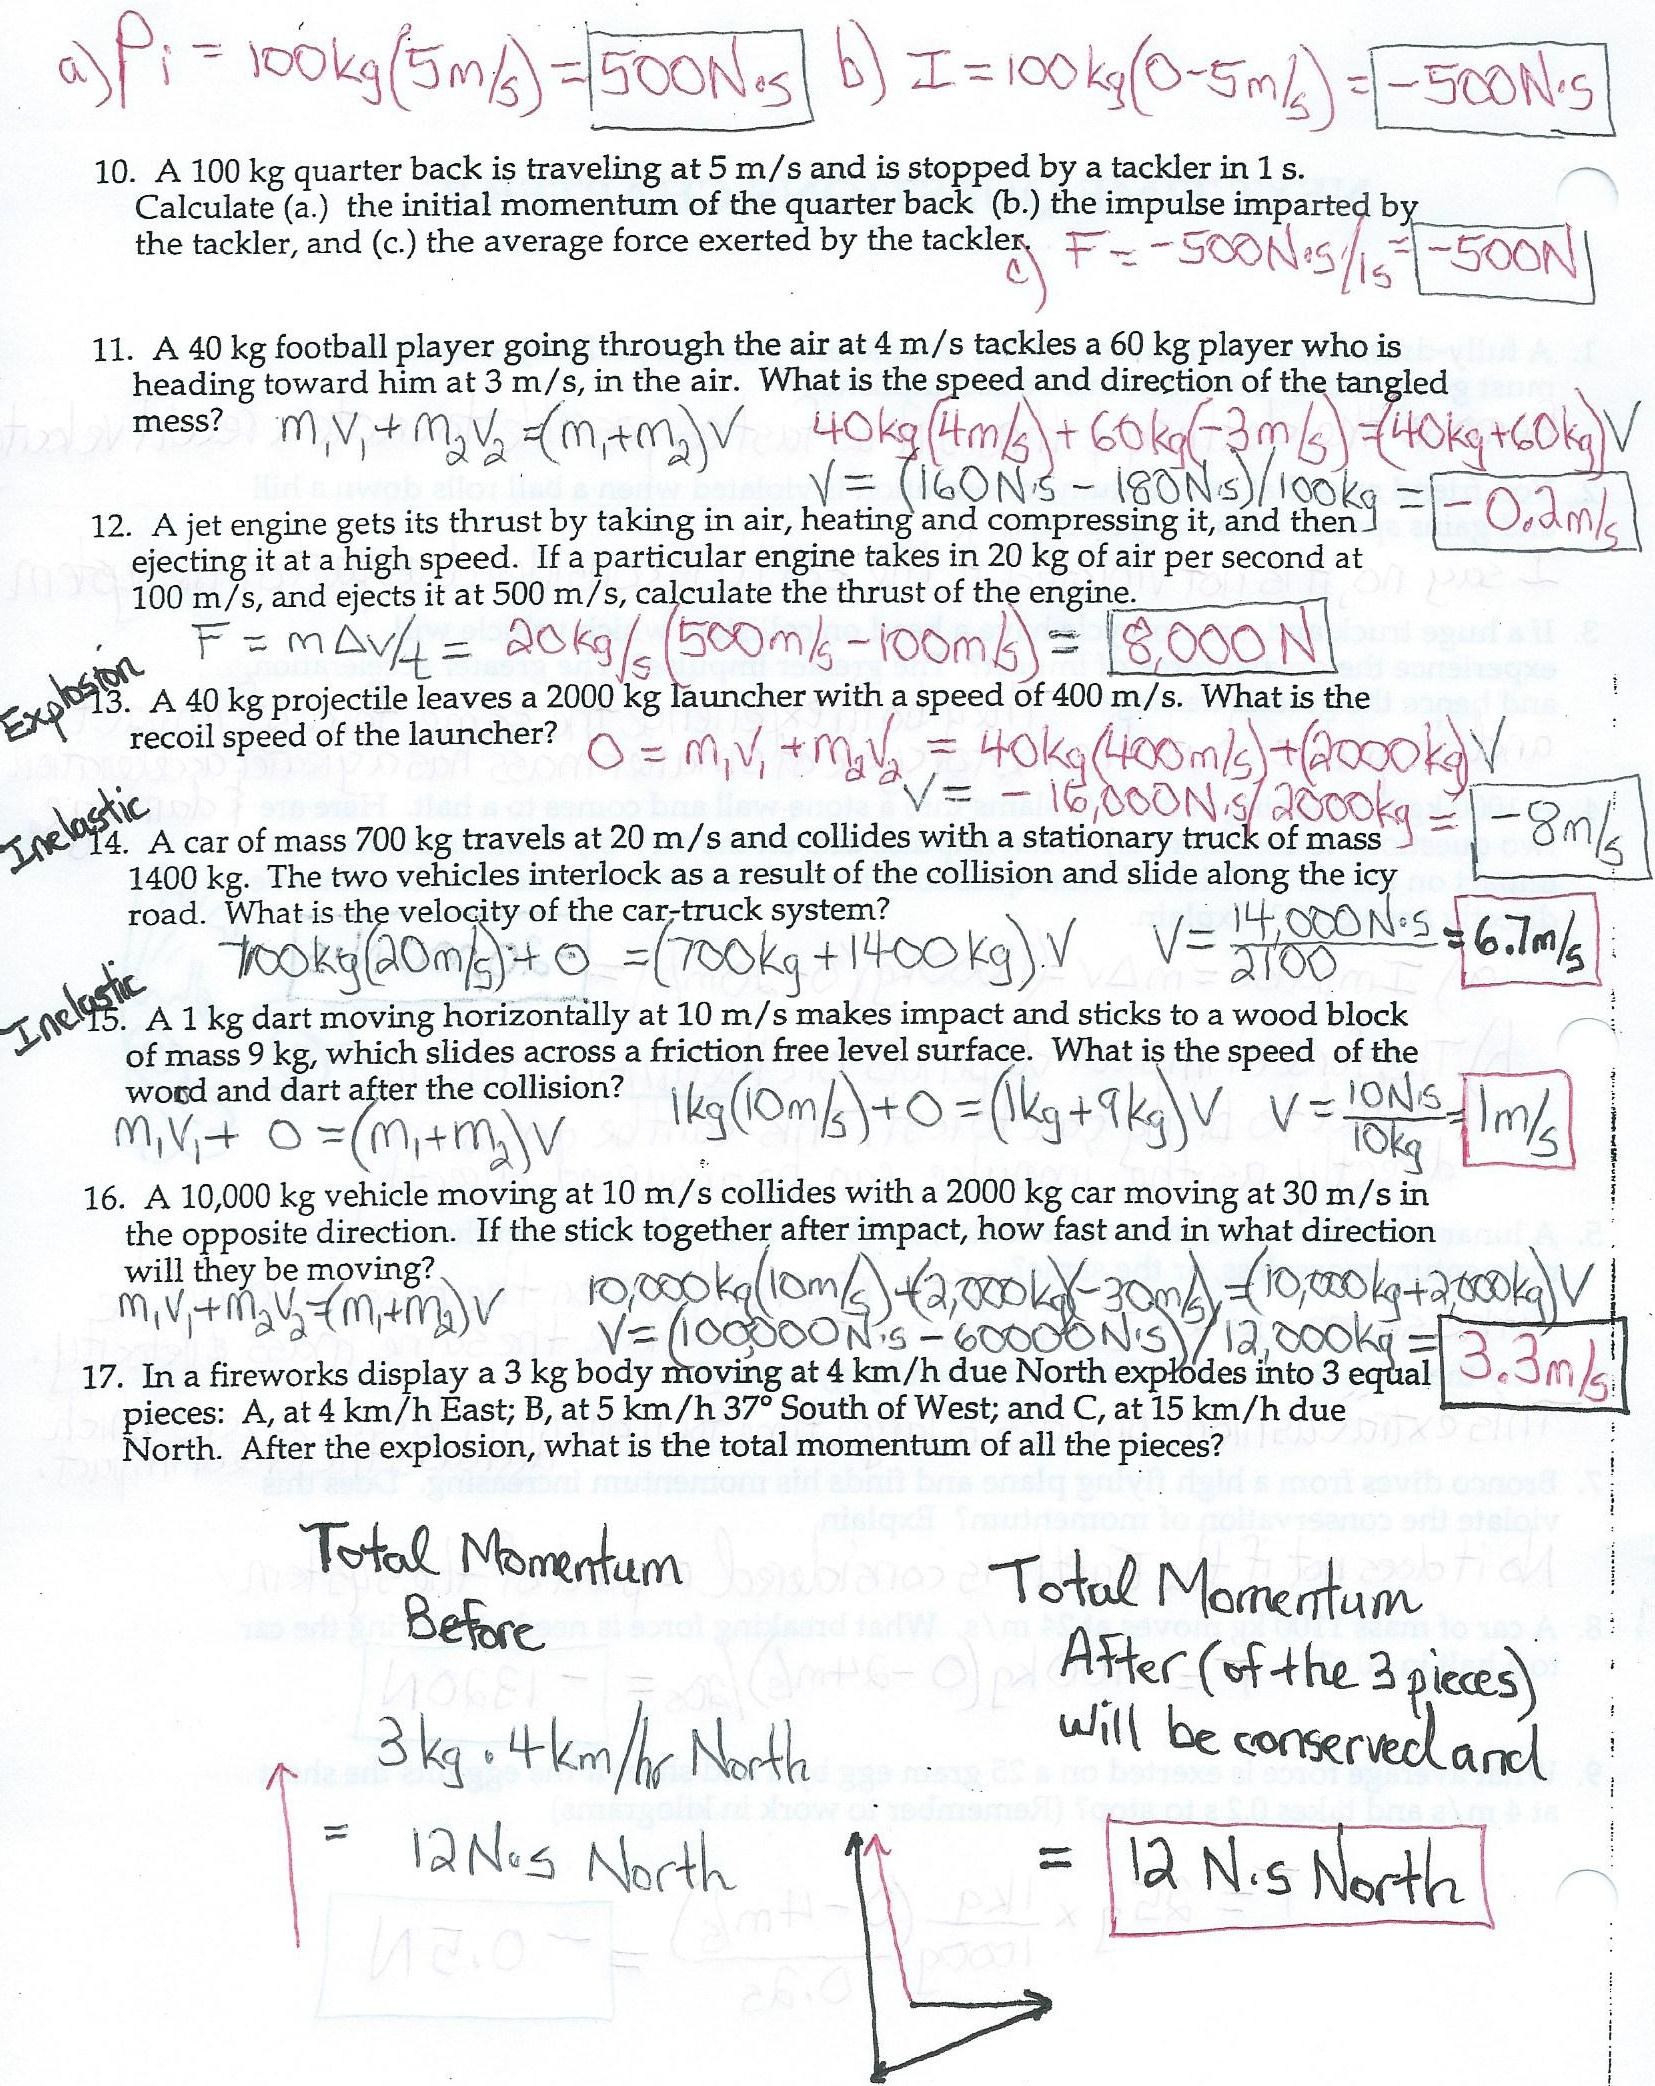 a) Pi = 100kg(5m/s) = 500N·s b) I = 100kg(0-5m/s) = -500N·s
10. A 100 kg quarter back is traveling at 5 m/s and is stopped by a tackler in 1 s.
Calculate (a.) the initial momentum of the quarter back (b.) the impulse imparted by
the tackler, and (c.) the average force exerted by the tackler.
c) F = -500N·s/1s = -500N
11. A 40 kg football player going through the air at 4 m/s tackles a 60 kg player who is
heading toward him at 3 m/s, in the air. What is the speed and direction of the tangled
mess? m₁V₁ + m₂V₂ = (m₁+m₂)V 40kg(4m/s) + 60kg(-3m/s) = (40kg+60kg)V
V = (160N·s - 180N·s)/100kg = -0.2m/s
12. A jet engine gets its thrust by taking in air, heating and compressing it, and then
ejecting it at a high speed. If a particular engine takes in 20 kg of air per second at
100 m/s, and ejects it at 500 m/s, calculate the thrust of the engine.
F = mΔv/t = 20kg/s(500m/s - 100m/s) = 8,000N
Explosion
13. A 40 kg projectile leaves a 2000 kg launcher with a speed of 400 m/s. What is the
recoil speed of the launcher? 0 = m₁V₁ + m₂V₂ = 40kg(400m/s) + (2000kg)V
V = -16,000N·s/2000kg = -8m/s
Inelastic
14. A car of mass 700 kg travels at 20 m/s and collides with a stationary truck of mass
1400 kg. The two vehicles interlock as a result of the collision and slide along the icy
road. What is the velocity of the car-truck system?
700kg(20m/s) + 0 = (700kg + 1400kg)·V V = 14,000N·s/2100 = 6.7m/s
Inelastic
15. A 1 kg dart moving horizontally at 10 m/s makes impact and sticks to a wood block
of mass 9 kg, which slides across a friction free level surface. What is the speed of the
word and dart after the collision? 1kg(10m/s) + 0 = (1kg+9kg)V V = 10N·s/10kg = 1m/s
m₁V₁ + 0 = (m₁+m₂)V
16. A 10,000 kg vehicle moving at 10 m/s collides with a 2000 kg car moving at 30 m/s in
the opposite direction. If the stick together after impact, how fast and in what direction
will they be moving? 10,000kg(10m/s) + (2,000kg)(-30m/s) = (10,000kg+2,000kg)V
m₁V₁ + m₂V₂ = (m₁+m₂)V
V = (100000N·s - 60000N·s)/12,000kg = 3.3m/s
17. In a fireworks display a 3 kg body moving at 4 km/h due North explodes into 3 equal
pieces: A, at 4 km/h East; B, at 5 km/h 37° South of West; and C, at 15 km/h due
North. After the explosion, what is the total momentum of all the pieces?
Total Momentum
Before
3kg·4km/hr North
= 12N·s North
Total Momentum
After (of the 3 pieces)
will be conserved and
= 12 N·s North